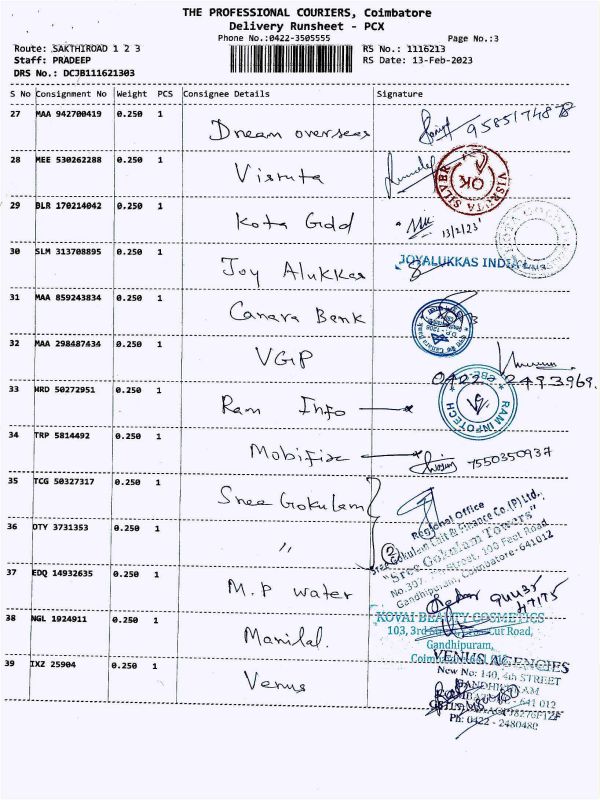 THE PROFESSIONAL COURIERS, Coimbatore
Delivery Runsheet - PCX
Phone No.:0422-3505555
Page No.:3
Route: SAKTHIROAD 1 2 3
RS No.: 1116213
Staff: PRADEEP
RS Date: 13-Feb-2023
DRS No.: DCJB111621303
S No Consignment No Weight PCS Consignee Details Signature
27 MAA 942700419 0.250 1
Dream overseas 9585174878
28 MEE 530262288 0.250 1
Visruta
VISRUTA SILVER
OK
29 BLR 170214042 0.250 1
Kota Gdd 13/2/23
30 SLM 313708895 0.250 1
Joy Alukkas JOYALUKKAS INDIA
31 MAA 859243834 0.250 1
Canara Bank
32 MAA 298487434 0.250 1
VGP
0422 2493969.
33 WRD 50272951 0.250 1
Ram Info RAM INFOTECH
34 TRP 5814492 0.250 1
Mobifix 7550350937
35 TCG 50327317 0.250 1
Sree Gokulam
Regional Office
Sree Gokulam Chit & Finance Co.(P) Ltd.,
"Sree Gokulam Towers"
36 DTY 3731353 0.250 1
"
2
No.307, Street, 100 Feet Road
Gandhipuram, Coimbatore-641012
37 EDQ 14932635 0.250 1
M.P water
38 NGL 1924911 0.250 1
Manilal.
KOVAI BEAUTY COSMETICS
103, 3rd Cut Road,
Gandhipuram,
39 IXZ 25904 0.250 1
Venus
VENUS AGENCIES
New No: 140, 4th STREET
GANDHIPURAM
641 012
Ph: 0422 - 2480480